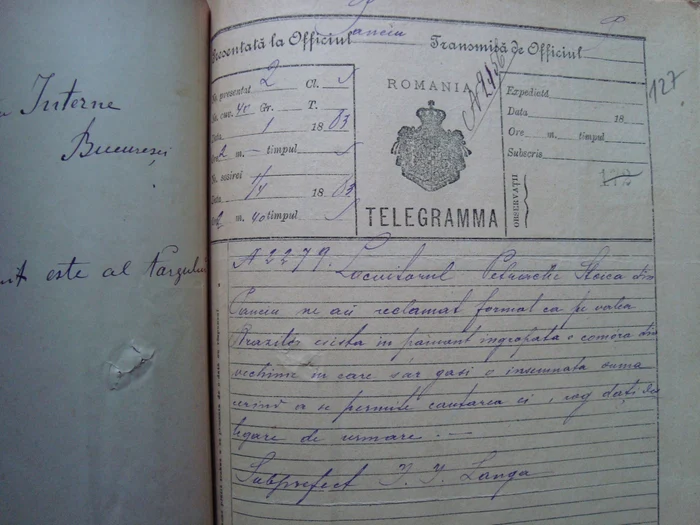 Interne
București
este al Târgului
Presentată la Officiul Panciu
Transmisă de Officiul
No. presentat 2 Cl.
No. cuv. 40 Gr. T.
Data 1 1883
Ore 2 m. — timpul
No. sosirei
Data 1/4 1883
m. 40 timpul
ROMANIA
TELEGRAMMA
Expedictă
Data 18
Ore m. timpul
Subscris
OBSERVAȚII
112
127
A 2279. Locuitorul Petrache Stoica din
Panciu ne au reclamat formal ca pe valea
esista in pămant ingropata o comora din
vechime in care s'ar gasi o insemnata suma
cerind a se permite cautarea ei, rog dați des
legare de urmare. —
Subprefect I. I. Langa